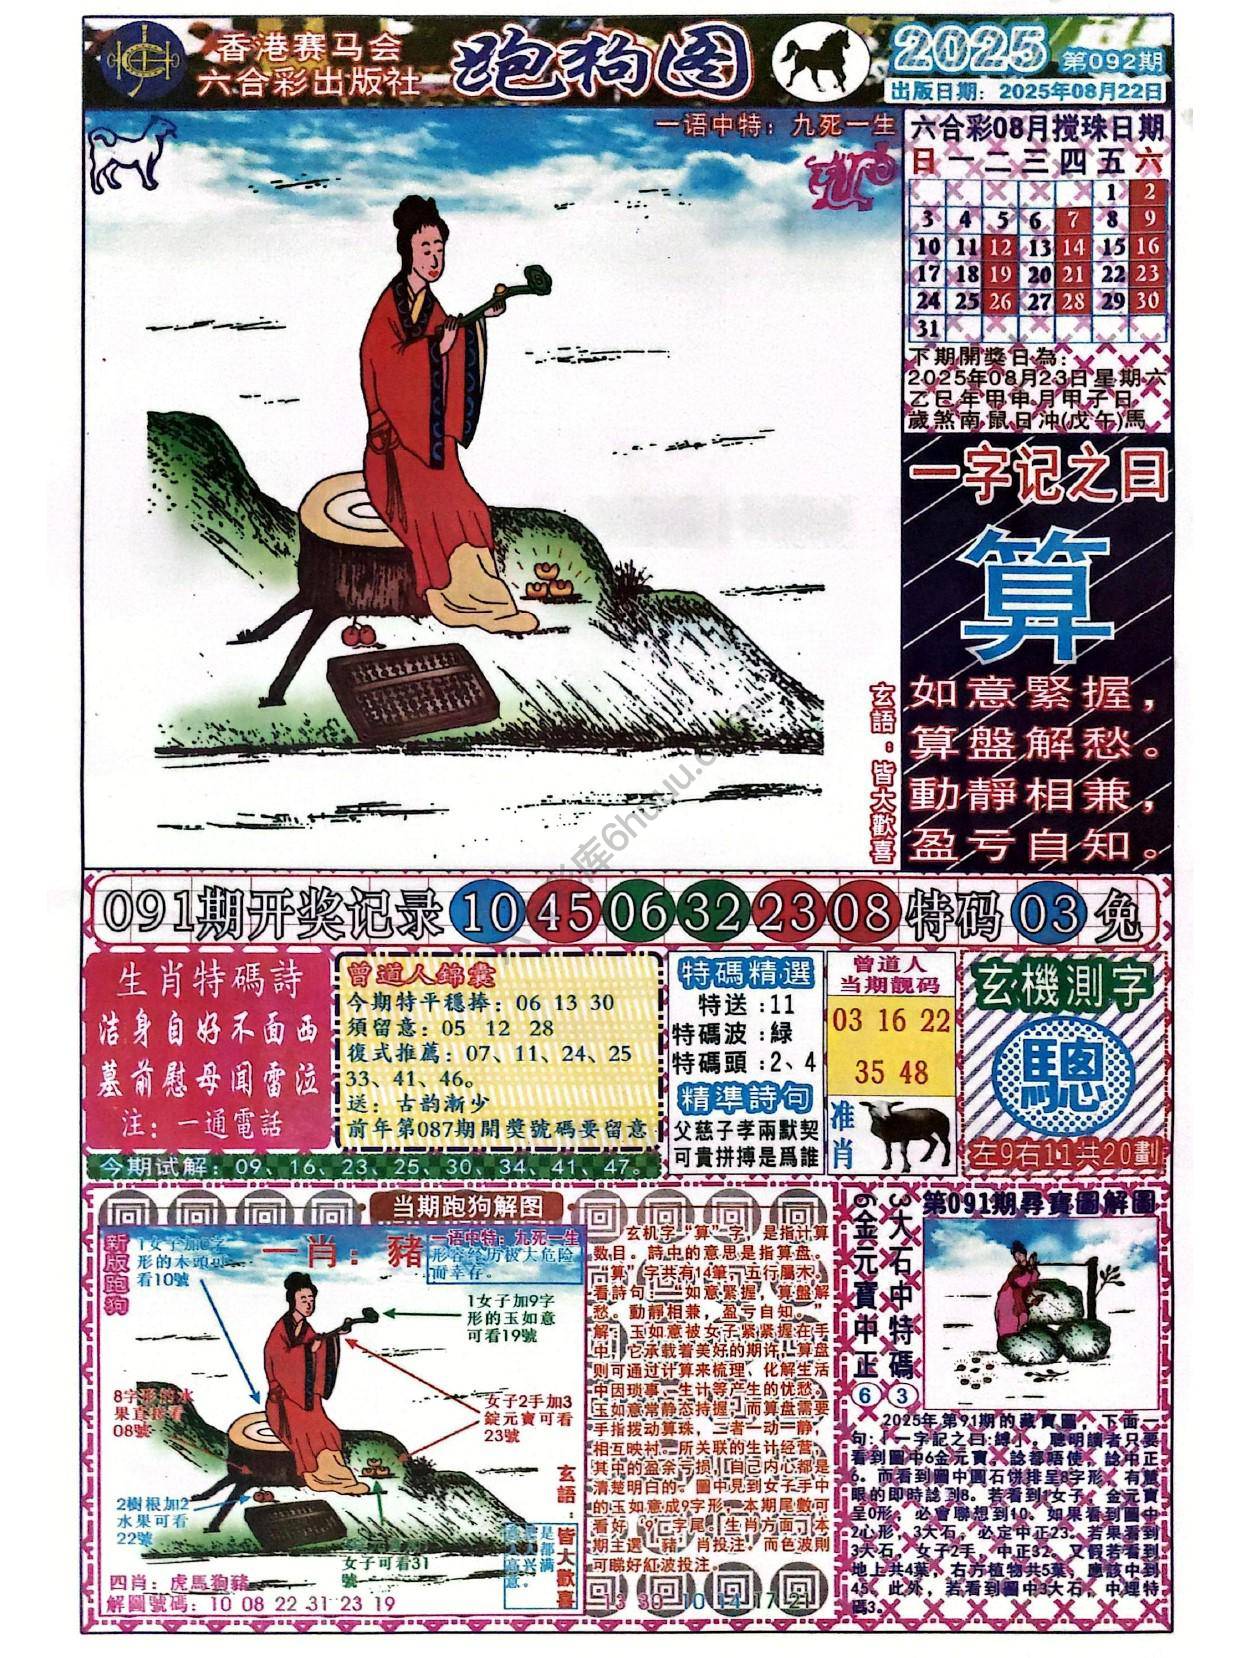 香港赛马会
六合彩出版社
跑狗图
2025 第092期
出版日期：2025年08月22日
一语中特：九死一生
六合彩08月搅珠日期
日 一 二 三 四 五 六
1 2
3 4 5 6 7 8 9
10 11 12 13 14 15 16
17 18 19 20 21 22 23
24 25 26 27 28 29 30
31
下期開獎日為：
2025年08月23日星期六
乙巳年甲申月甲子日
歲煞南鼠日沖(戊午)馬
一字记之曰
算
如意緊握，
算盤解愁。
動靜相兼，
盈亏自知。
玄語：皆大歡喜
091期开奖记录 10 45 06 32 23 08 特码 03 兔
生肖特碼詩
洁身自好不面西
墓前慰母聞雷泣
注：一通電話
曾道人錦囊
今期特平穩捧：06 13 30
須留意：05 12 28
復式推薦：07、11、24、25
33、41、46。
送：古韵漸少
前年第087期開獎號碼要留意
今期试解：09、16、23、25、30、34、41、47。
特碼精選
特送：11
特碼波：緑
特碼頭：2、4
精準詩句
父慈子孝兩默契
可貴拼搏是爲誰
曾道人
当期靓码
03 16 22
35 48
准肖
玄機測字
驄
左9右11共20劃
当期跑狗解图
新版跑狗
1女子加0字
形的木頭可
看10號
一肖：豬
一语中特：九死一生
形容经历极大危险
而幸存。
1女子加9字
形的玉如意
可看19號
8字形的水
果直接看
08號
女子2手加3
錠元寶可看
23號
2樹根加2
水果可看
22號
女子可看31
號
玄語：皆大歡喜
四肖：虎馬狗豬
解圖號碼：10 08 22 31 23 19
玄机字“算”字，是指计算
数目。詩中的意思是指算盘。
“算”字共有14筆，五行屬木。
看詩句：“如意緊握，算盤解
愁。動靜相兼，盈亏自知。”
解：玉如意被女子紧紧握在手
中，它承载着美好的期许，算盘
则可通过计算来梳理、化解生活
中因琐事、生计等产生的忧愁。
玉如意常静态持握，而算盘需要
手指拨动算珠，二者一动一静，
相互映衬。所关联的生计经营，
其中的盈余亏损，自己内心都是
清楚明白的。圖中見到女子手中
的玉如意成9字形，本期尾數可
看好“9”字尾。生肖方面，本
期主選“豬”肖投注。而色波則
可睇好紅波投注。
13 30 10 14 17 21
6金元寶中正⑥
3大石中特碼③
第091期尋寶圖解圖
2025年第91期的藏寶圖，下面一
看到圖中6金元寶。諗都唔使，諗中正
6。而看到圖中圓石饼排呈8字形，有蟹
眼的即時諗到8。若看到1女子，金元寶
呈0形，必會聯想到10。如果看到圖中
2心形，3大石，必定中正23。若果看到
3大石，女子2手，中正32。又假若看到
地上共4葉，右方植物共5葉，應該中到
45。此外，若看到圖中3大石，中埋特
碼3。